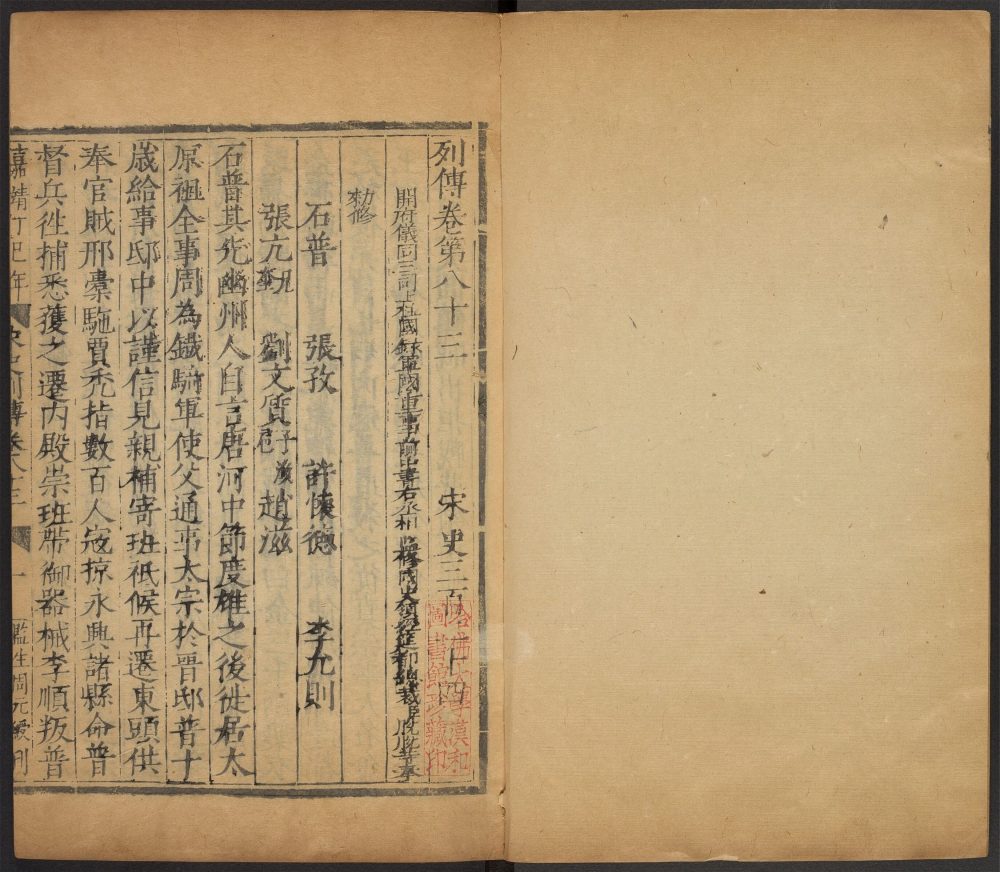 列傳卷第八十三　宋史三百二十四
開府儀同三司上柱國錄軍國重事前中書右丞相監修國史領經筵事都總裁臣脫脫等奉
勑修
石普　張孜　許懷德　李允則
張亢兄奎　劉文質子渙滬　趙滋
石普其先幽州人自言唐河中節度雄之後徙居太
原祖全事周為鐵騎軍使父通事太宗於晉邸普十
歲給事邸中以謹信見親補寄班祗候再遷東頭供
奉官賊邢橐駞賈禿指數百人寇掠永興諸縣命普
督兵徃捕悉獲之遷內殿崇班帶御器械李順叛普
嘉靖丁巳年　宋史列傳卷八十三　一　監生周元綬刊
哈佛大學漢和
圖書館珍藏印